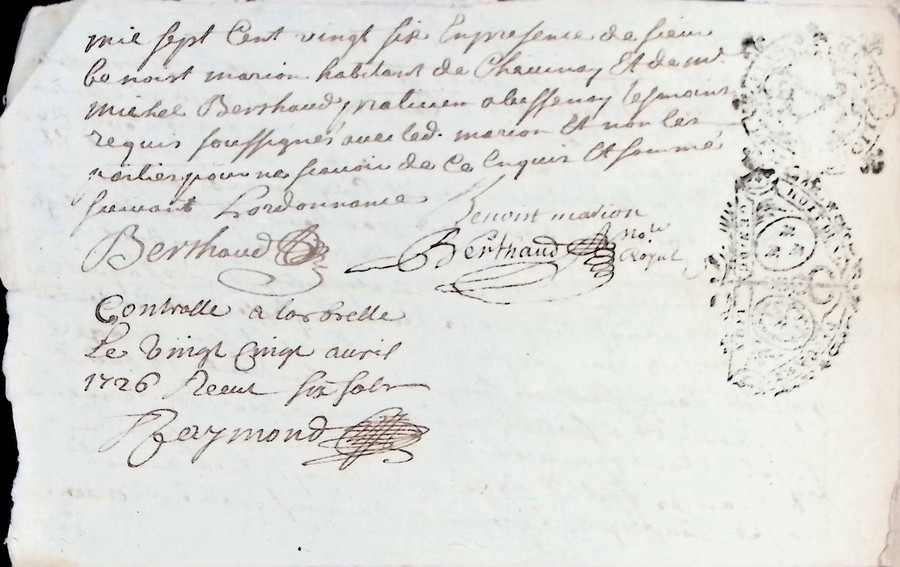 mil sept Cent vingt six En presence de sieur
benoist marion habitant de Chavenay Et de mr
michel Berthaud praticien a bessenay tesmoins
requis soussignes avec led. marion Et non les
parties pour ne scavoir de Ce Enquis Et sommé
suivant Lordonnance
Benoist marion
Berthaud Berthaud Nore Royal
Controlle a larbrelle
Le Vingt Cinqt avril
1726 Receu six sols
Raymond